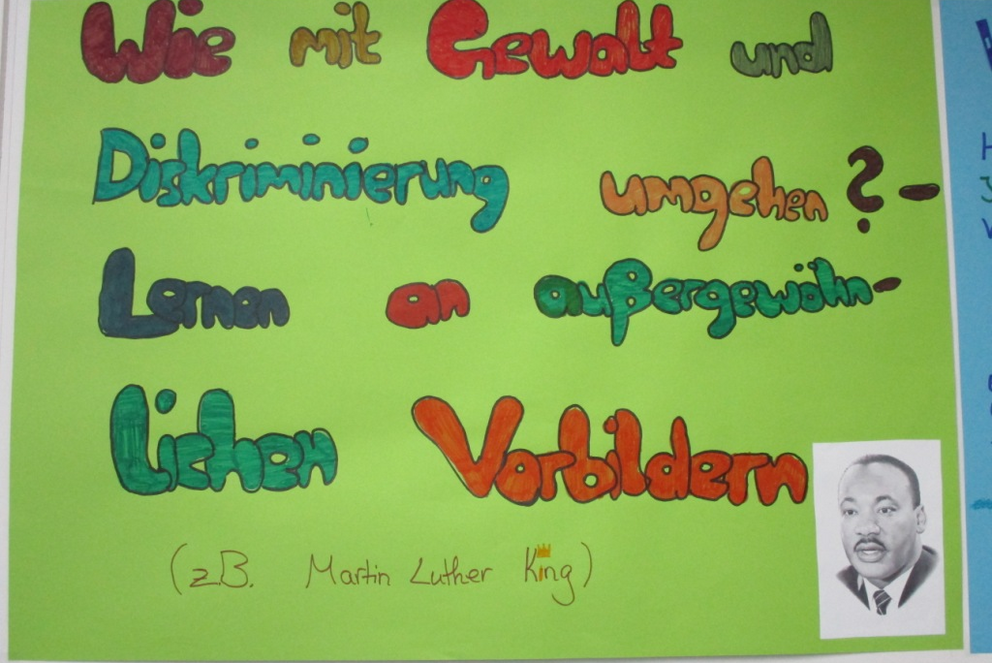 Wie mit Gewalt und
Diskriminierung umgehen? -
Lernen an außergewöhn-
lichen Vorbildern
(z.B. Martin Luther King)